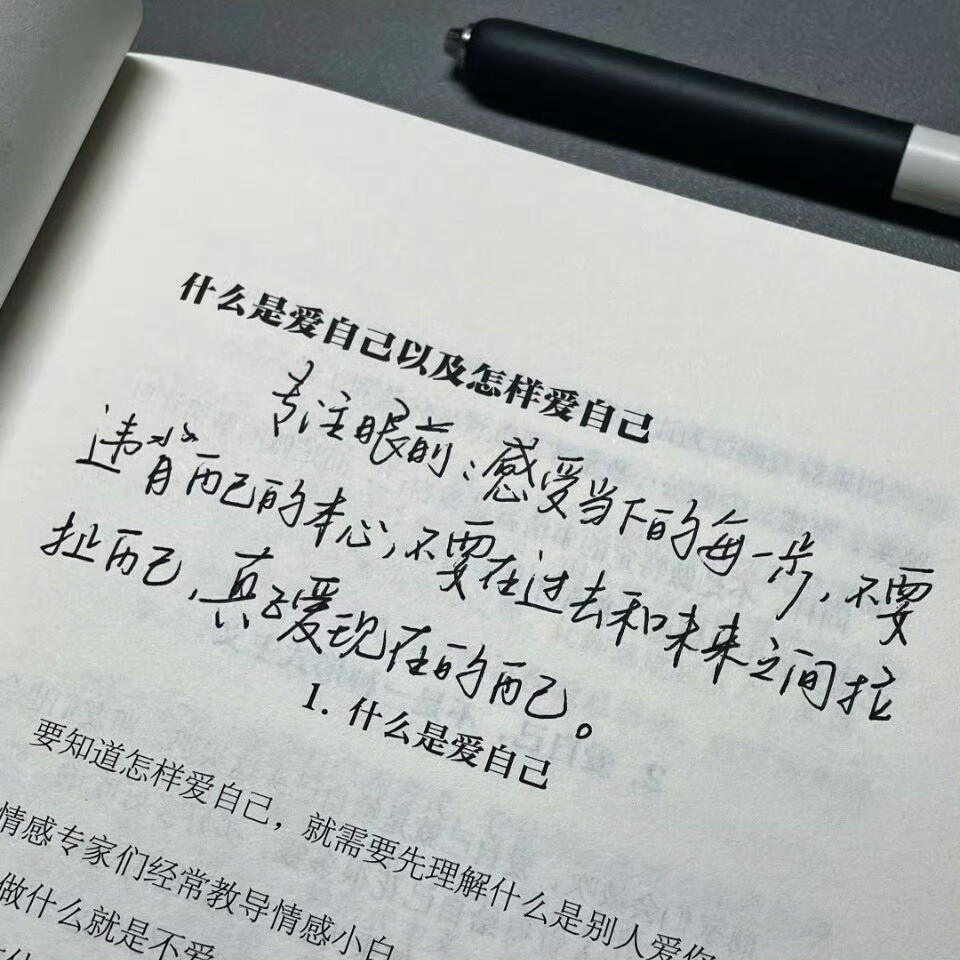 什么是爱自己以及怎样爱自己
专注眼前：感受当下的每一步，不要
违背自己的本心，不要在过去和未来之间拉
扯自己，真正爱现在的自己。
1. 什么是爱自己
要知道怎样爱自己，就需要先理解什么是别人爱你
情感专家们经常教导情感小白
做什么就是不爱